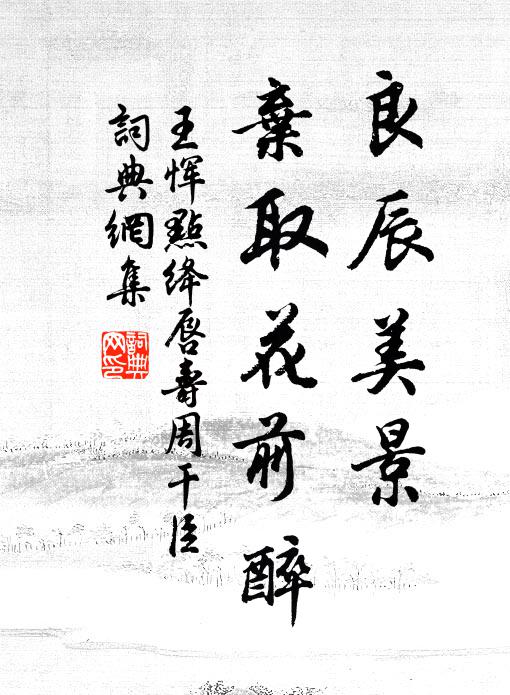 良辰美景
棄取花前醉
王惲點絳唇壽周干臣
詞典網集
詞典
网印